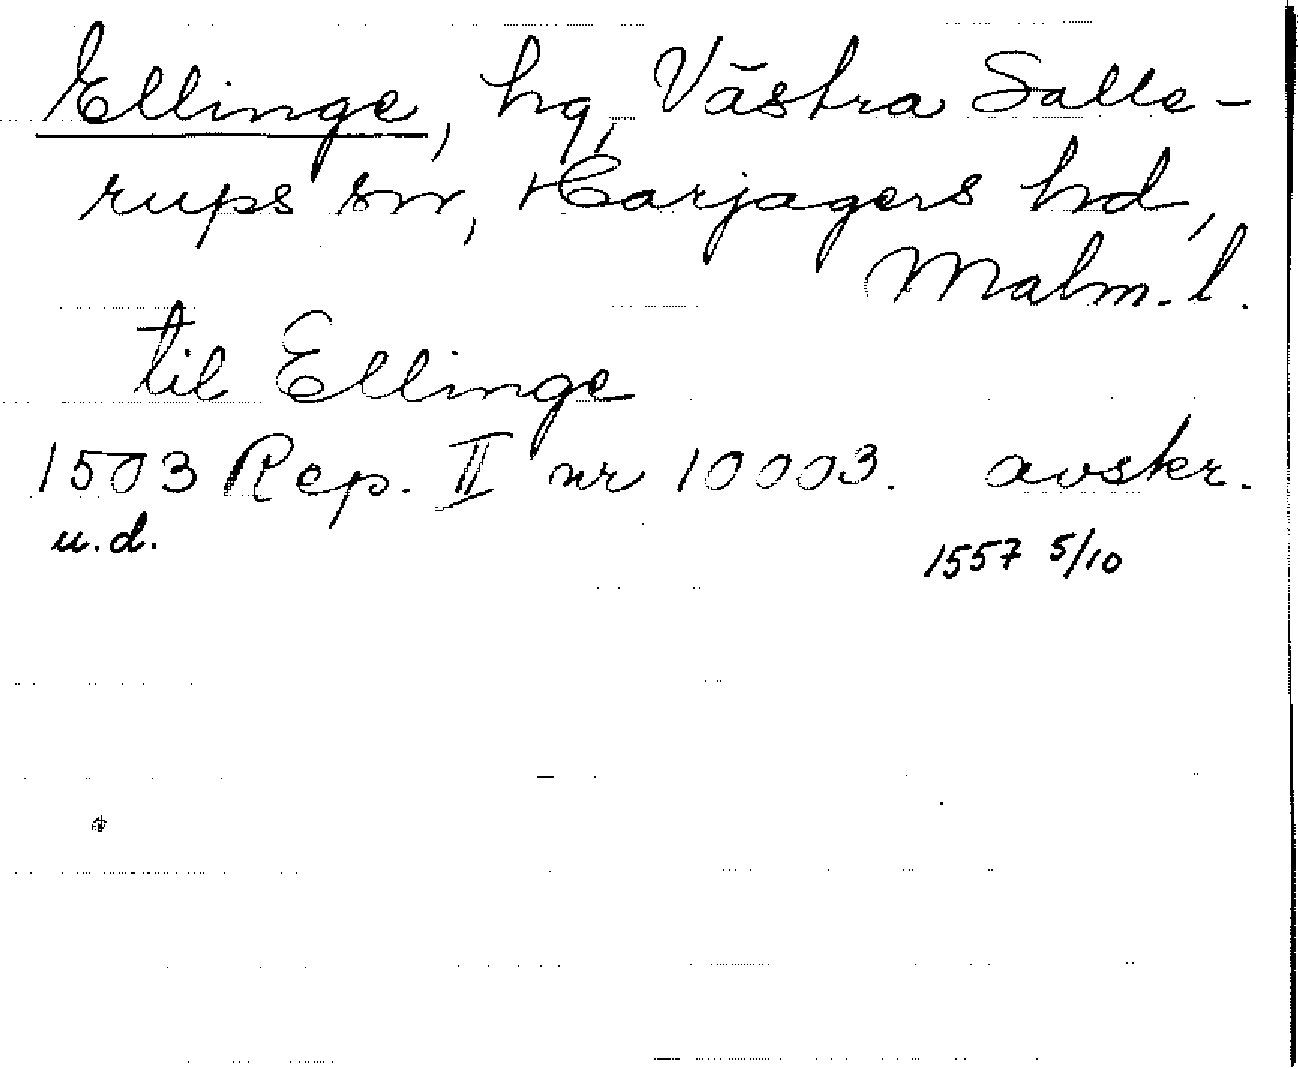 Ellinge, hg, Västra Salle-
rups sn, Harjagers hd,
Malm. l.
til Ellinge
1503 Rep. II nr 10003. avskr.
u.d. 1557 5/10